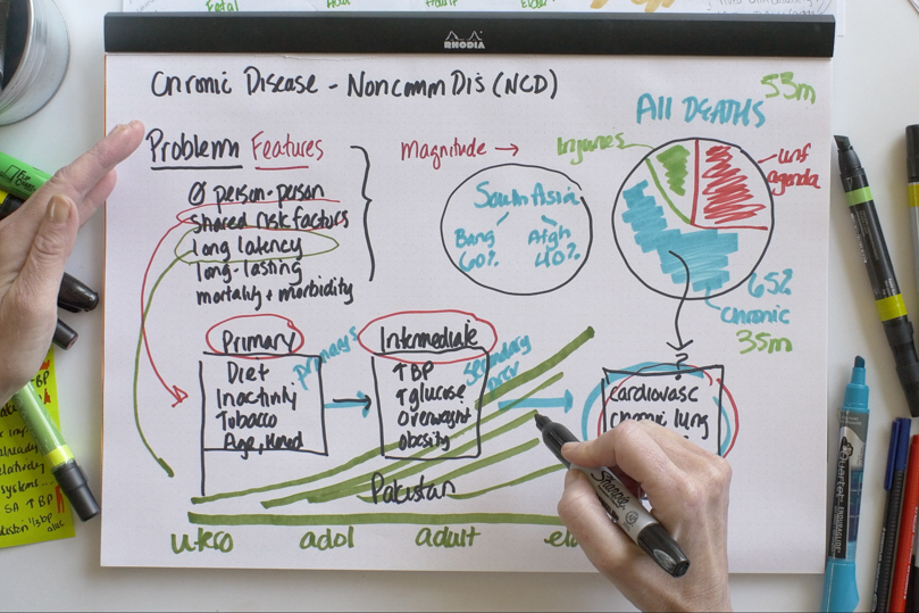 Fetal
Adult
Elder
RHODIA
Chronic Disease - Noncomm Dis (NCD)
53m
All DEATHS
Problem Features
Magnitude →
Injuries
inf
agenda
Ø person-person
shared risk factors
long latency
long-lasting
mortality + morbidity
South Asia
Bang
60%
Afgh
40%
65%
chronic
35m
Primary
primary
Intermediate
secondary
Diet
Inactivity
Tobacco
Age, Hered
↑BP
↑glucose
Overweight
obesity
cardiovasc
chronic lung
Pakistan
utero adol adult el
Sharpie
BP
already
relatively
systems...
SA ↑ BP
1/3 BP
Quartet
ENDURAGLIDE